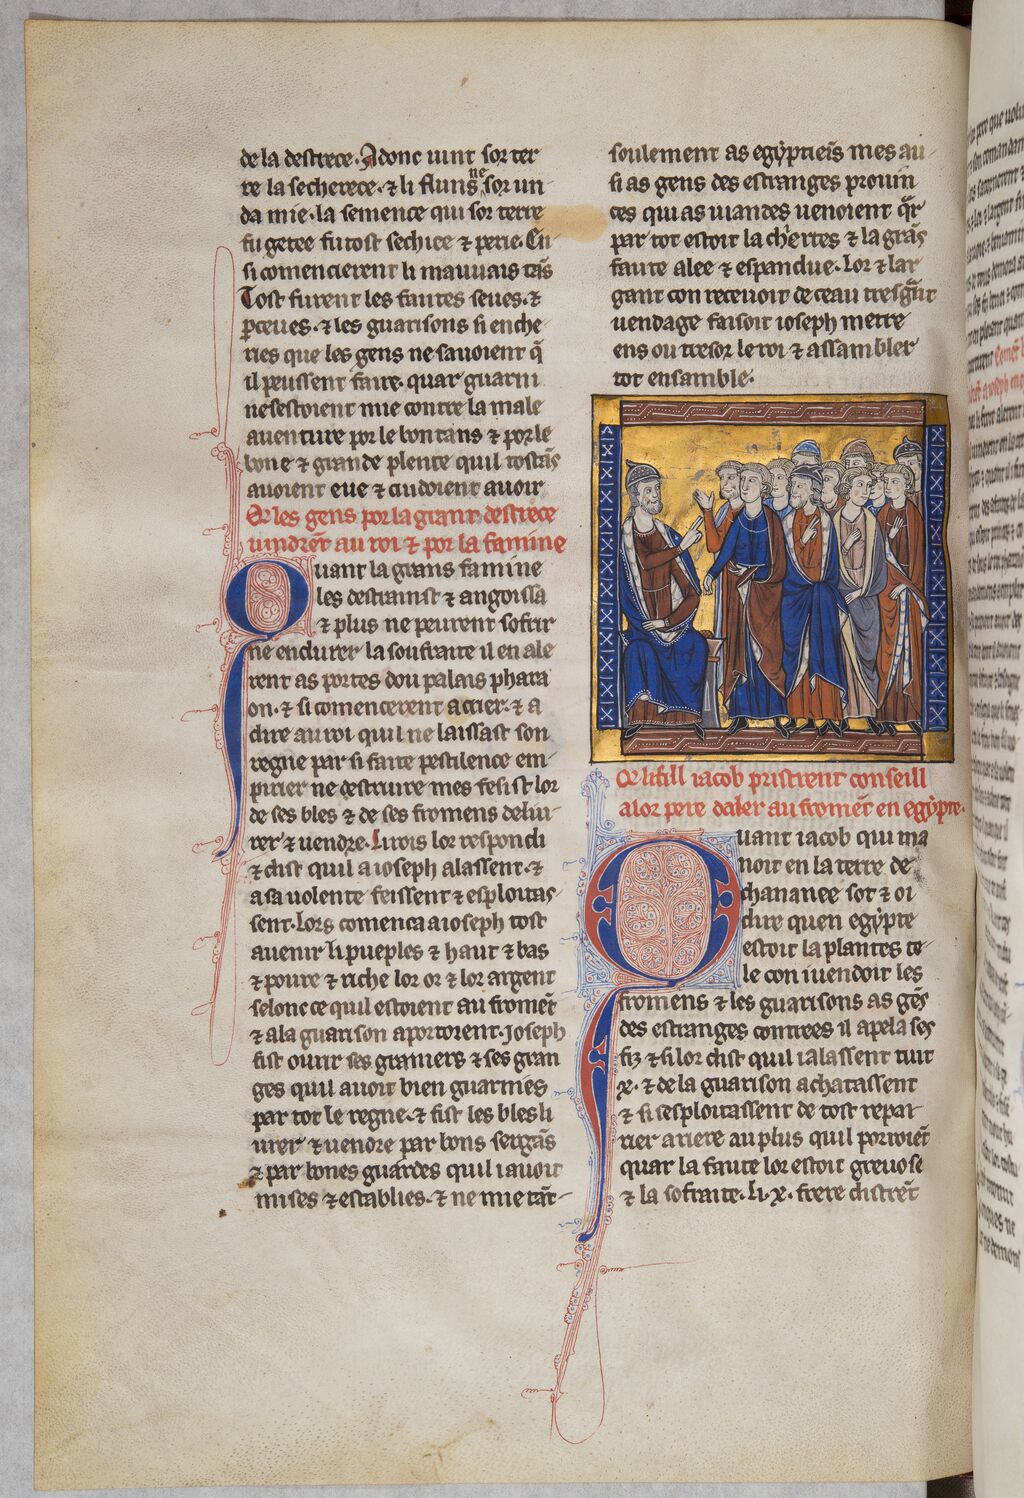 de la destrece. Adonc uint sor ter
re la secherece. ⁊ li fluns ne sor un
da mie. la semence qui sor terre
fu getee fu tost sechiee ⁊ perie. En
si comencierent li mauuais tãs
Tost furent les fautes seues. ⁊
ꝑceues. ⁊ les guarisons si enche
ries que les gens ne sauoient q̃
il peussent faire. quar guarni
ne sestoient mie contre la male
auenture por le bon tans ⁊ por le
bone ⁊ grande plente quil tostãs
auoient eue ⁊ cuidoient auoir
Q̃e les gens por la grant destrece
uindrẽt au roi ⁊ por la famine
Quant la grans famine
les destrainst ⁊ angoissa
⁊ plus ne peurent sofrir
ne endurer la soufraite il en ale
rent as portes dou palais phara
on. ⁊ si comencerent a crier. ⁊ a
dire au roi quil ne laissast son
regne par si faite pestilence em
pirier ne destruire mes fesist lor
de ses bles ⁊ de ses fromens deliu
rer ⁊ uendre. Li rois lor respondi
⁊ dist quil a ioseph alassent. ⁊
a sa uolente feissent ⁊ esploitas
sent. Lors comenca a ioseph tost
auenir li pueples ⁊ haut ⁊ bas
⁊ poure ⁊ riche lor or ⁊ lor argent
selonc ce quil estoient au fromẽt
⁊ a la guarison aportorent. Joseph
fist ourir ses graniers ⁊ ses gran
ges quil auoit bien guarnies
par tot le regne. ⁊ fist les bles li
urer ⁊ uendre par bons sergãs
⁊ par bones guardes quil i auoit
mises ⁊ establies. ⁊ ne mie tãt
soulement as egyptieĩs mes au
si as gens des estranges prouin
ces qui as uiandes uenoient q̃r
par tot estoit la chertes ⁊ la grãs
faute alee ⁊ espandue. Lor ⁊ lar
gant con receuoit de ceau
uendage faisoit ioseph metre
ens ou tresor le roi ⁊ assambler
tot ensamble.
Q̃e li fill iacob pristrent conseill
a lor pere daler au fromẽt en egypte.
Quant iacob qui ma
noit en la terre de
chananee sot ⁊ oi
dire quen egypte
estoit la plantes te
le con i uendoit les
fromens ⁊ les guarisons as gẽs
des estranges contrees il apela ses
fiz ⁊ si lor dist quil i alassent tuit
.x. ⁊ de la guarison achatassent
⁊ si sesploitassent de tost repai
rier ariere au plus quil porroiẽt
quar la faute lor estoit greuose
⁊ la sofraite. Li .x. frere distrẽt